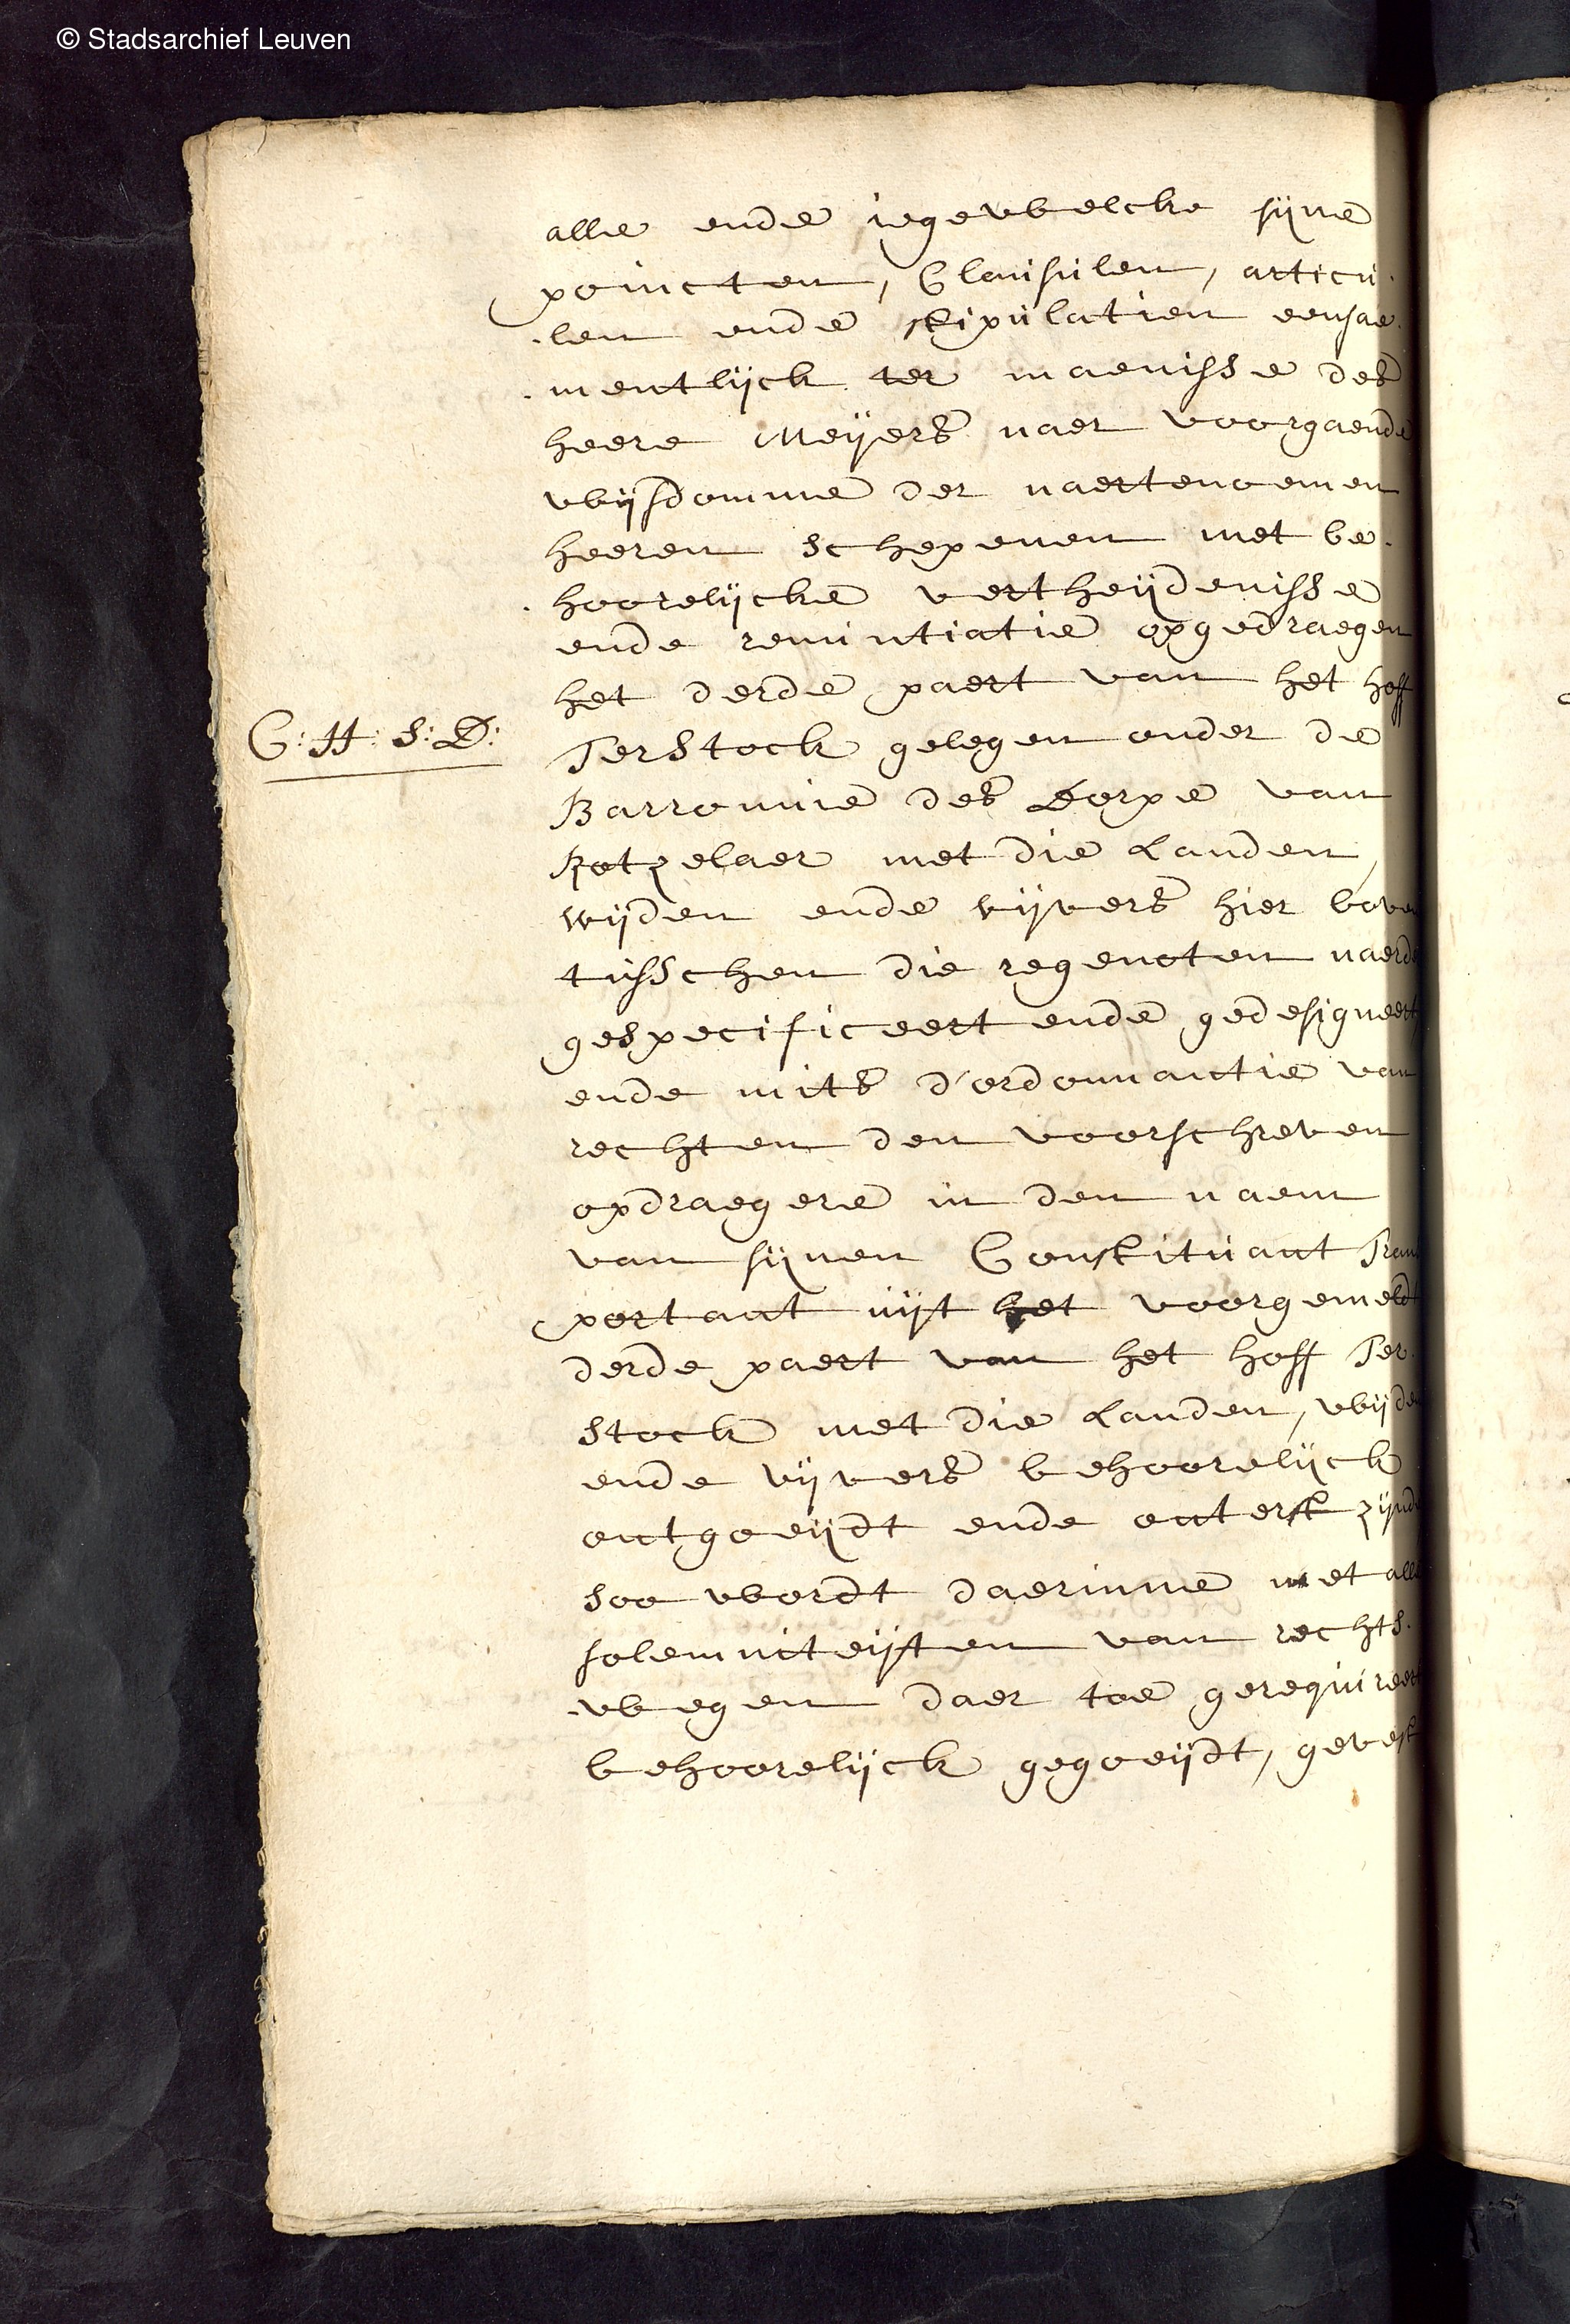 © Stadsarchief Leuven
alle ende iegewelcke sijne
poincten, Clausulen, articu-
-len ende stipulatien eensae-
-mentlijck ter maenisse des
heere Meijers naer voorgaende
wijsdomme der naertenoemen
heeren schepenen met be-
-hoorelijcke vertheijdenisse
ende renuntiatie opgedraegen
het derde paert van het hoff
C: H: S: D:
Terstock gelegen onder de
Barronnie des Dorpe van
Rotzelaer met die Landen,
wijden ende vijvers hier boven
tusschen die regenoten naerder
gespecificeert ende gedesigneert,
ende mits d'ordonnantie van
rechten den voorschreven
opdraegere in den naem
van sijnen Constituant Trans
portant uijt het voorgemeldt
derde paert van het hoff Ter-
stock met die Landen, wijden
ende vijvers behoorelijck
ontgoeijdt ende onterft zijnde
soo wordt daerinne met alle
solemniteijten van rechts-
-wegen daer toe gerequireert
behoorelijck gegoeijdt, gevest